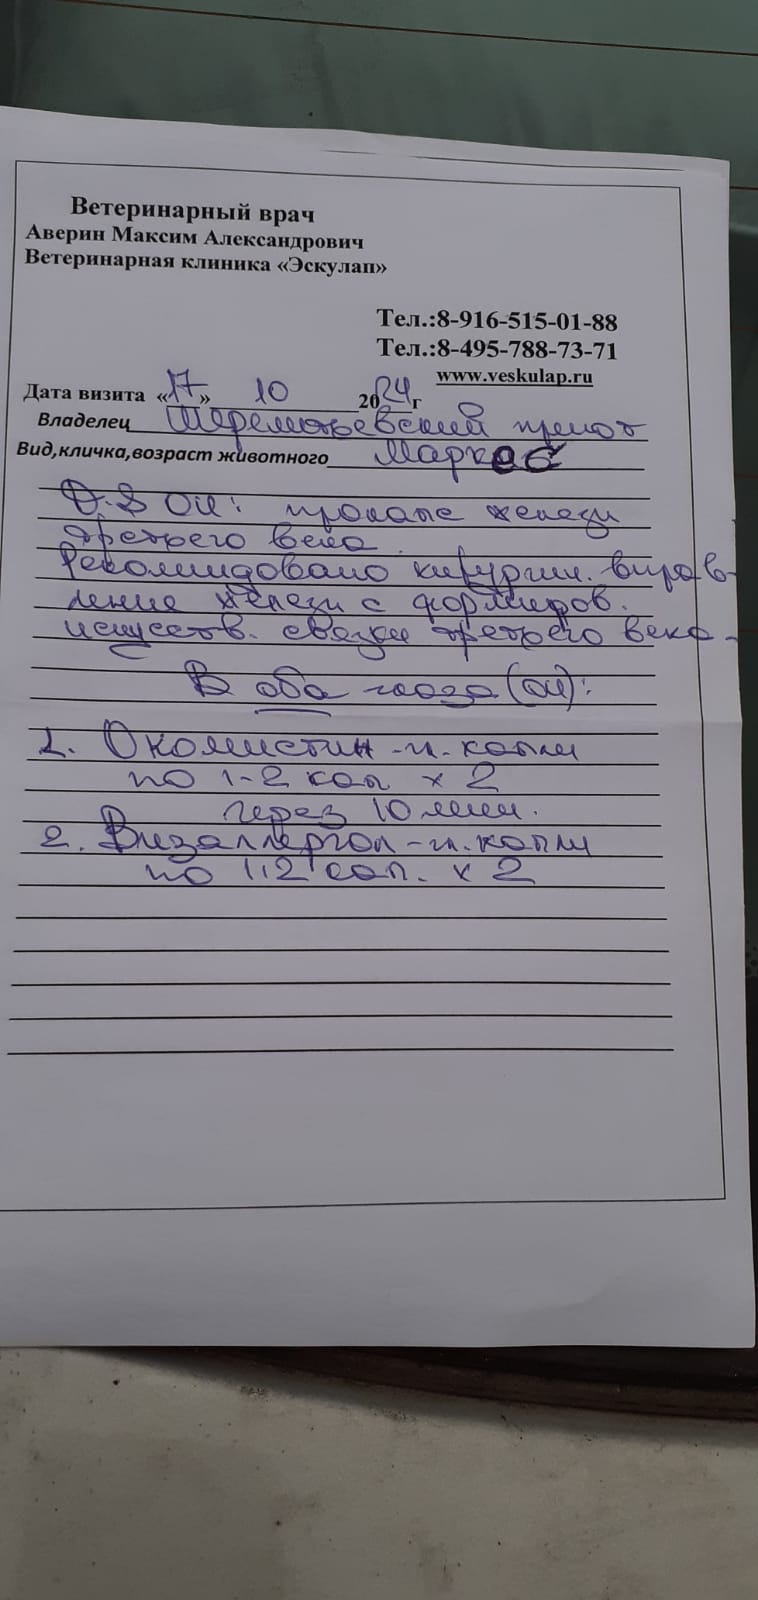 Ветеринарный врач
Аверин Максим Александрович
Ветеринарная клиника «Эскулап»
Тел.:8-916-515-01-88
Тел.:8-495-788-73-71
www.veskulap.ru
Дата визита «17» 10 2024г
Владелец Шереметьевский приют
Вид,кличка,возраст животного Маркес
D.S OU: пролапс железы
третьего века.
Рекомендовано хирургич. вправ-
ление железы с формиров.
искусств. связки третьего века.
В оба глаза (OU):
1. Окомистин - гл. капли
по 1-2 кап x 2
через 10 мин.
2. Визаллергол - гл. капли
по 1-2 кап. x 2